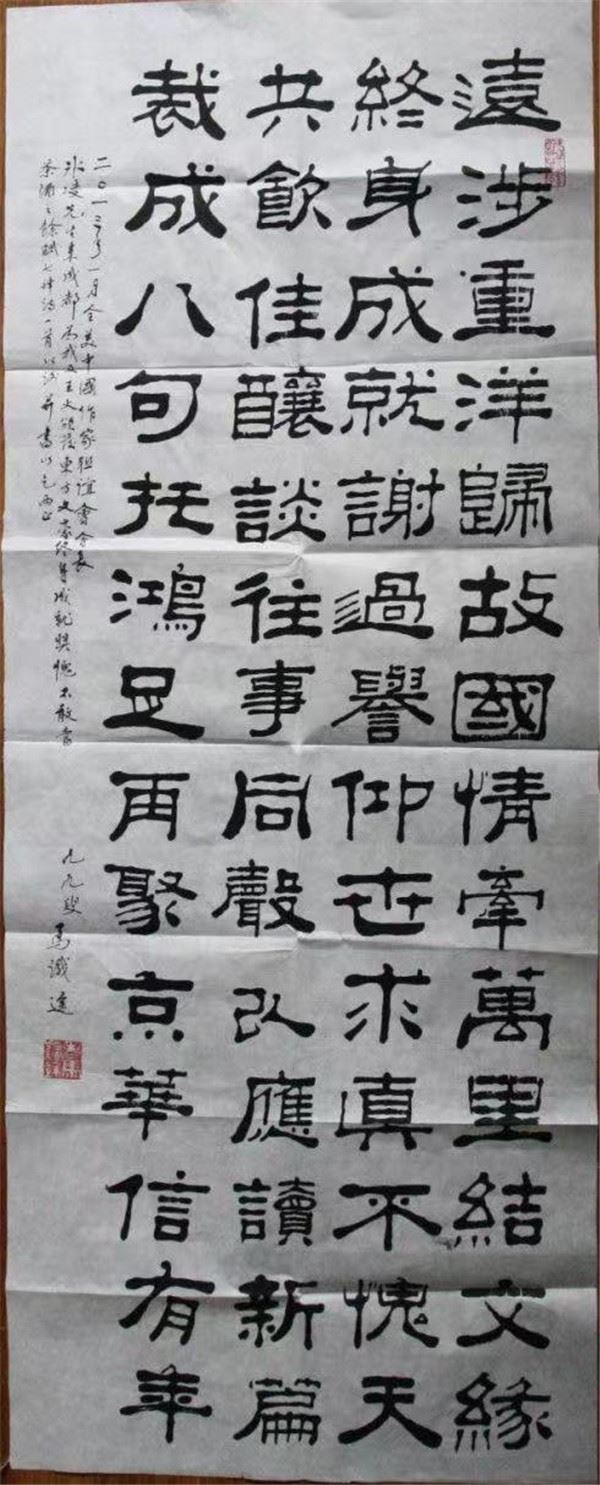 遠涉重洋歸故國情牽萬里結文緣
終身成就謝過譽仰世求真不愧天
共飲佳釀談往事同聲以應讀新篇
裁成八句托鴻足再聚京華信有年
二〇一三年一月全美中國作家聯誼會會長
冰凌先生來成都為我及王火頒發東方文豪終身成就獎愧不敢當
茶酒之餘賦七律詩一首以并書以乞正
九九叟馬識途